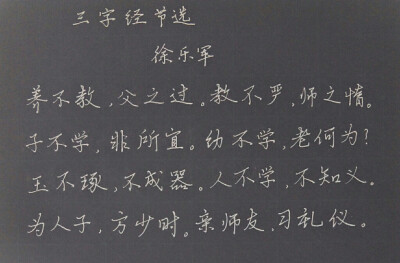 三字经节选
徐乐军
养不教，父之过。教不严，师之惰。
子不学，非所宜。幼不学，老何为？
玉不琢，不成器。人不学，不知义。
为人子，方少时。亲师友，习礼仪。